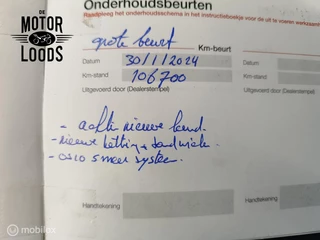 DE
MOTOR
LOODS
Onderhoudsbeurten
Raadpleeg het onderhoudsschema in het instructieboekje voor de uit te voeren
grote beurt
Km-beurt
Datum 30/1/2024 Datum
Km-stand 106700 Km-stand
Uitgevoerd door (Dealerstempel) Uitgevoerd door (Dealerstempel)
- achter nieuwe band.
- nieuwe ketting + tandwiele.
- smeer systeem.
Handtekening Handtekening
mobilox